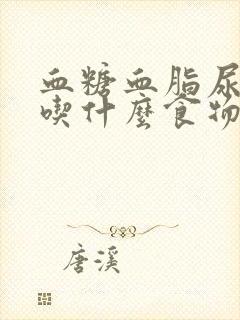 血糖血脂尿
喫什麼食物
唐溪